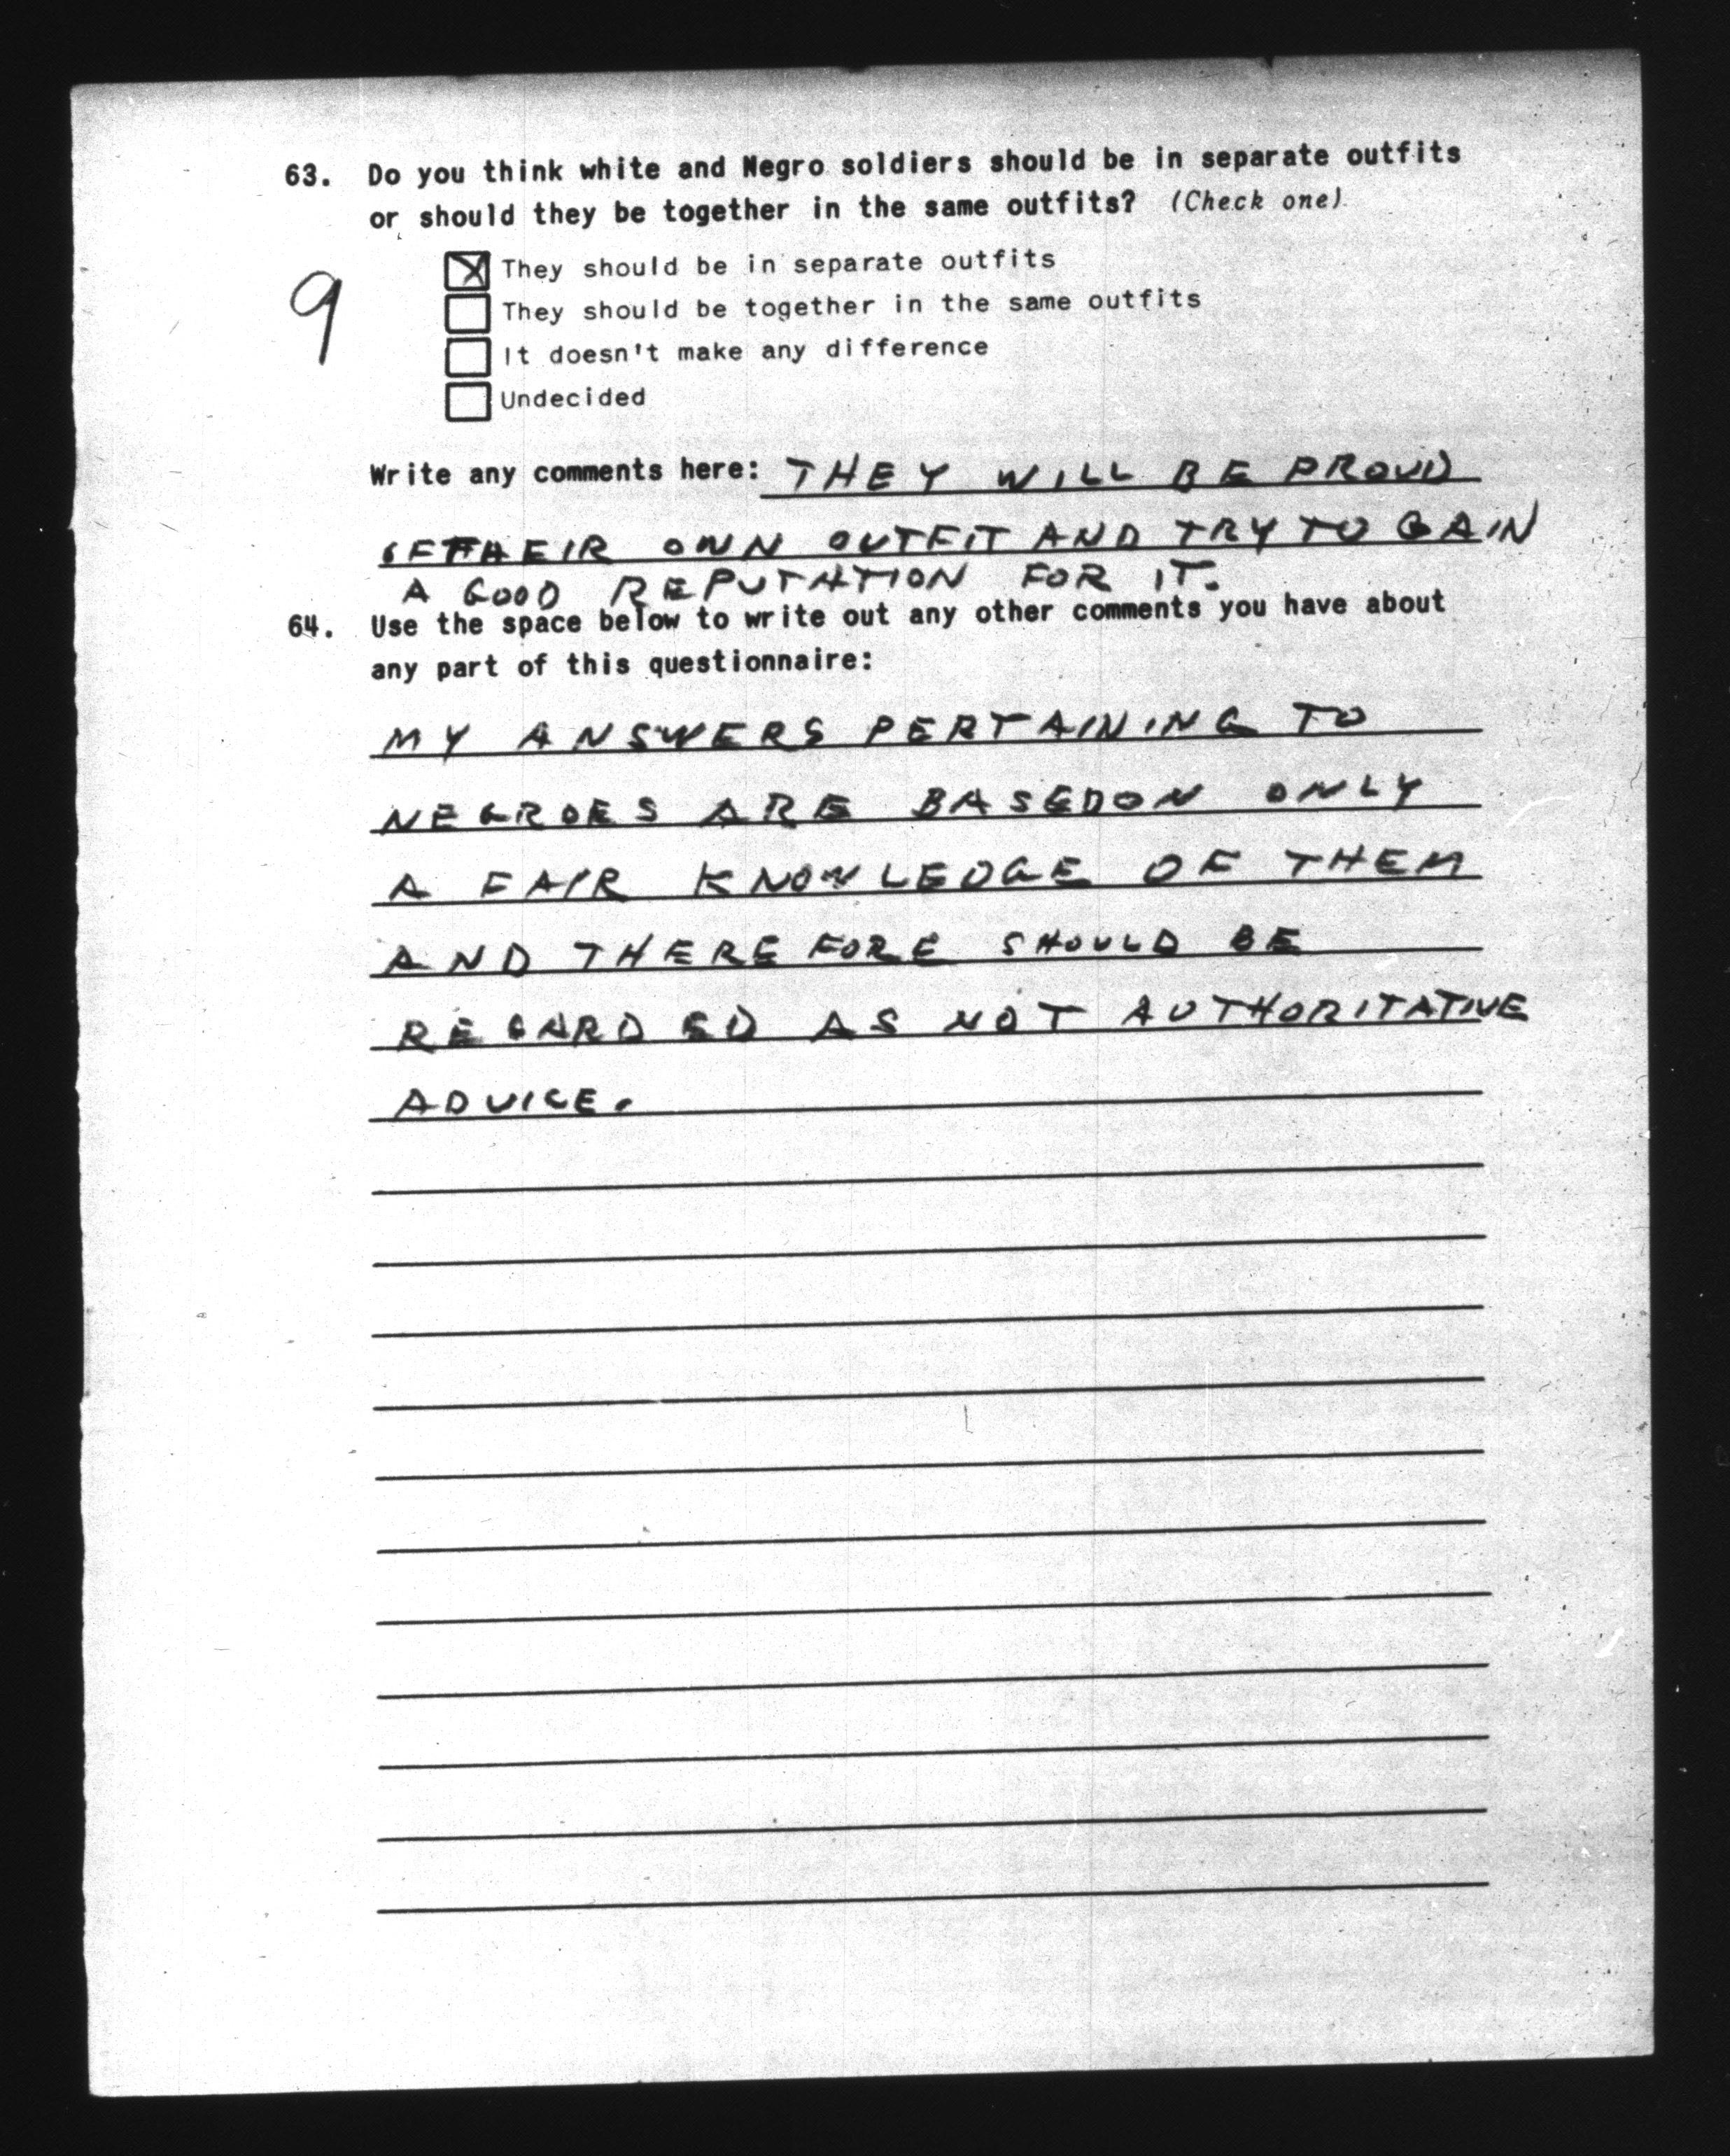 63. Do you think white and Negro soldiers should be in separate outfits
or should they be together in the same outfits? (Check one)
9
They should be in separate outfits
They should be together in the same outfits
It doesn't make any difference
Undecided
Write any comments here: THEY WILL BE PROUD
OF THEIR OWN OUTFIT AND TRY TO GAIN
A GOOD REPUTATION FOR IT.
64. Use the space below to write out any other comments you have about
any part of this questionnaire:
MY ANSWERS PERTAINING TO
NEGROES ARE BASED ON ONLY
A FAIR KNOWLEDGE OF THEM
AND THEREFORE SHOULD BE
REGARDED AS NOT AUTHORITATIVE
ADVICE.